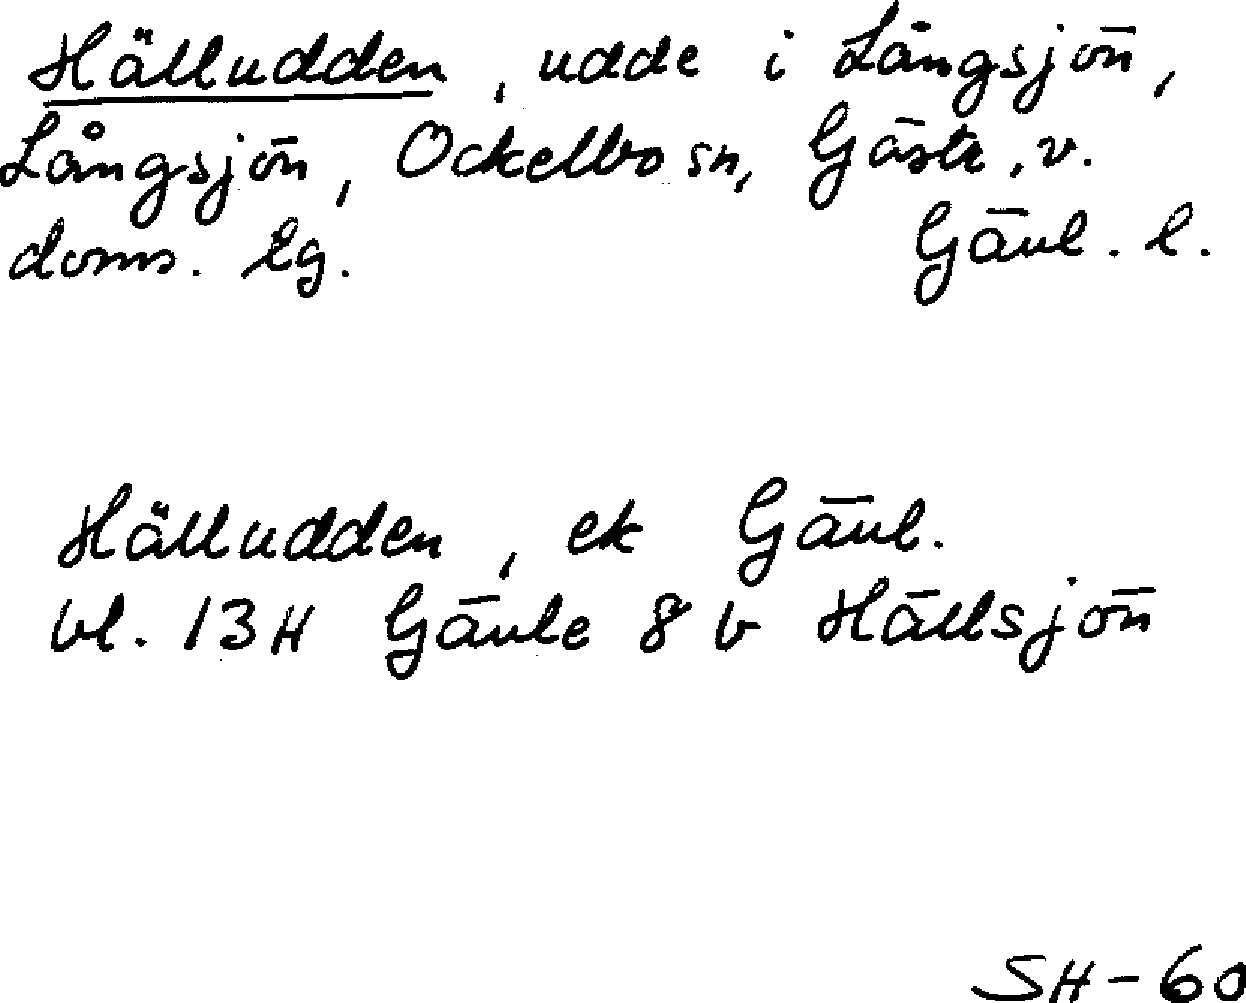 Hälludden, udde i Långsjön,
Långsjön, Ockelbo sn, Gästr. v.
doms. lg. Gävl. l.
Hälludden, ek Gävl.
bl. 13H Gävle 8 b Hällsjön
SH-60